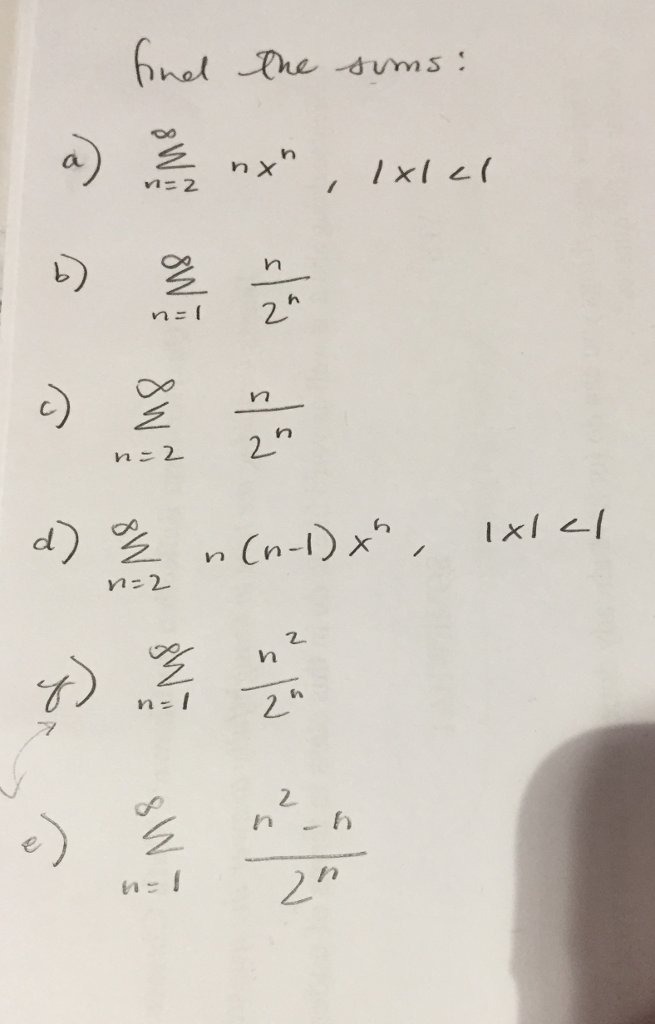 find the sums:
a) ∞ Σ n=2 nxⁿ , |x| < 1
b) ∞ Σ n=1 n/2ⁿ
c) ∞ Σ n=2 n/2ⁿ
d) ∞ Σ n=2 n(n-1)xⁿ, |x| < 1
f) ∞ Σ n=1 n²/2ⁿ
e) ∞ Σ n=1 n²-n/2ⁿ